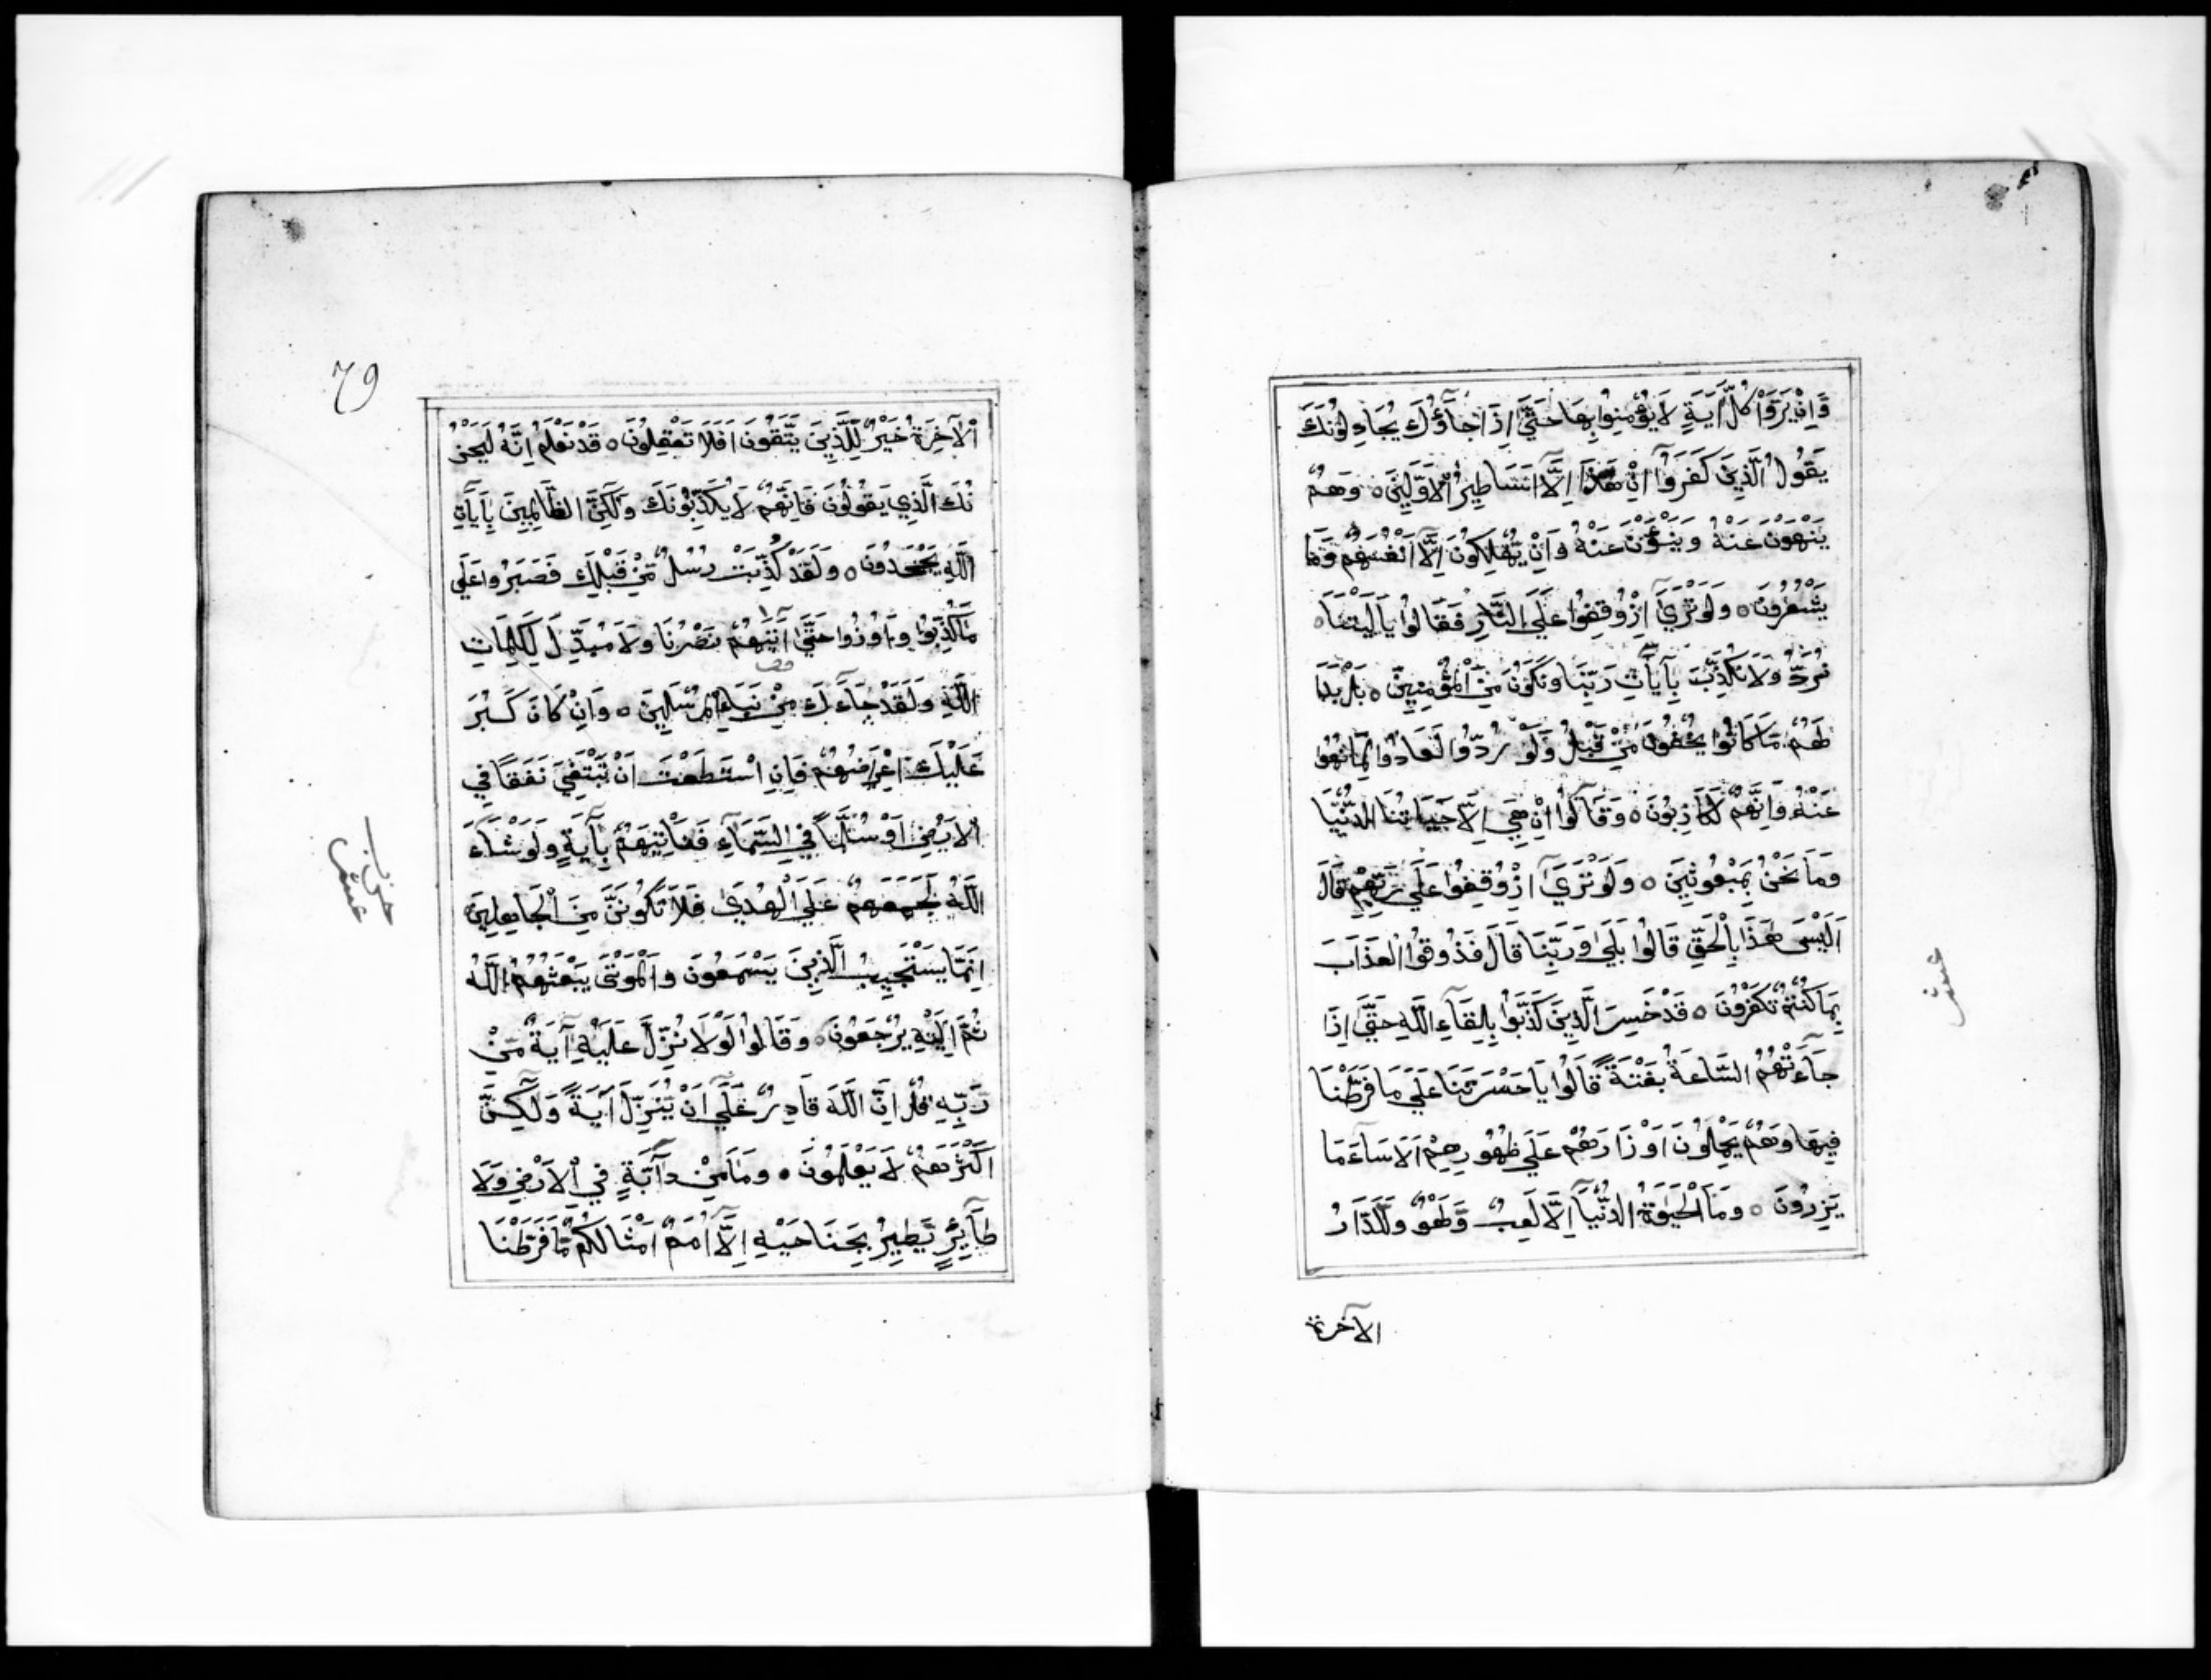 وَاِنْ يَرَوْا كُلَّ اٰيَةٍ لَا يُؤْمِنُوا بِهَا حَتّٰٓى اِذَا جَآؤُكَ يُجَادِلُونَكَ
يَقُولُ الَّذِينَ كَفَرُوٓا اِنْ هٰذَٓا اِلَّٓا اَسَاطِيرُ الْاَوَّلِينَ ه وَهُمْ
يَنْهَوْنَ عَنْهُ وَيَنْـَٔوْنَ عَنْهُ وَاِنْ يُهْلِكُونَ اِلَّٓا اَنْفُسَهُمْ وَمَا
يَشْعُرُونَ ه وَلَوْ تَرٰٓى اِذْ وُقِفُوا عَلَى النَّارِ فَقَالُوا يَا لَيْتَنَا
نُرَدُّ وَلَا نُكَذِّبَ بِآيَاتِ رَبِّنَا وَنَكُونَ مِنَ الْمُؤْمِنِينَ ه بَلْ بَدَا
لَهُمْ مَا كَانُوا يُخْفُونَ مِنْ قَبْلُ وَلَوْ رُدُّوا لَعَادُوا لِمَا نُهُوا
عَنْهُ وَاِنَّهُمْ لَكَاذِبُونَ ه وَقَالُٓوا اِنْ هِيَ اِلَّا حَيَاتُنَا الدُّنْيَا
وَمَا نَحْنُ بِمَبْعُوثِينَ ه وَلَوْ تَرٰٓى اِذْ وُقِفُوا عَلٰى رَبِّهِمْ قَالَ
اَلَيْسَ هٰذَا بِالْحَقِّ قَالُوا بَلٰى وَرَبِّنَا قَالَ فَذُوقُوا الْعَذَابَ
بِمَا كُنْتُمْ تَكْفُرُونَ ه قَدْ خَسِرَ الَّذِينَ كَذَّبُوا بِلِقَآءِ اللّٰهِ حَتّٰٓى اِذَا
جَآءَتْهُمُ السَّاعَةُ بَغْتَةً قَالُوا يَا حَسْرَتَنَا عَلٰى مَا فَرَّطْنَا
فِيهَا وَهُمْ يَحْمِلُونَ اَوْزَارَهُمْ عَلٰى ظُهُورِهِمْ اَلَا سَآءَ مَا
يَزِرُونَ ه وَمَا الْحَيٰوةُ الدُّنْيَٓا اِلَّا لَعِبٌ وَلَهْوٌ وَلَلدَّارُ
الآخرة
عشر
79
الْاٰخِرَةُ خَيْرٌ لِلَّذِينَ يَتَّقُونَ اَفَلَا تَعْقِلُونَ ه قَدْ نَعْلَمُ اِنَّهُ لَيَحْزُ
نُكَ الَّذِي يَقُولُونَ فَاِنَّهُمْ لَا يُكَذِّبُونَكَ وَلٰكِنَّ الظَّالِمِينَ بِآيَاتِ
اللّٰهِ يَجْحَدُونَ ه وَلَقَدْ كُذِّبَتْ رُسُلٌ مِنْ قَبْلِكَ فَصَبَرُوا عَلٰى
مَا كُذِّبُوا وَاُوذُوا حَتّٰٓى اَتٰيهُمْ نَصْرُنَا وَلَا مُبَدِّلَ لِكَلِمَاتِ
اللّٰهِ وَلَقَدْ جَآءَكَ مِنْ نَبَاءِ الْمُرْسَلِينَ ه وَاِنْ كَانَ كَبُرَ
عَلَيْكَ اِعْرَاضُهُمْ فَاِنِ اسْتَطَعْتَ اَنْ تَبْتَغِيَ نَفَقًا فِي
الْاَرْضِ اَوْ سُلَّمًا فِي السَّمَآءِ فَتَاْتِيَهُمْ بِآيَةٍ وَلَوْ شَآءَ
اللّٰهُ لَجَمَعَهُمْ عَلَى الْهُدٰى فَلَا تَكُونَنَّ مِنَ الْجَاهِلِينَ
اِنَّمَا يَسْتَجِيبُ الَّذِينَ يَسْمَعُونَ وَالْمَوْتٰى يَبْعَثُهُمُ اللّٰهُ
ثُمَّ اِلَيْهِ يُرْجَعُونَ ه وَقَالُوا لَوْلَا نُزِّلَ عَلَيْهِ آيَةٌ مِنْ
رَبِّهِ قُلْ اِنَّ اللّٰهَ قَادِرٌ عَلٰٓى اَنْ يُنَزِّلَ آيَةً وَلٰكِنَّ
اَكْثَرَهُمْ لَا يَعْلَمُونَ ه وَمَا مِنْ دَآبَّةٍ فِي الْاَرْضِ وَلَا
طَآئِرٍ يَطِيرُ بِجَنَاحَيْهِ اِلَّٓا اُمَمٌ اَمْثَالُكُمْ مَا فَرَّطْنَا
حزب
عشر